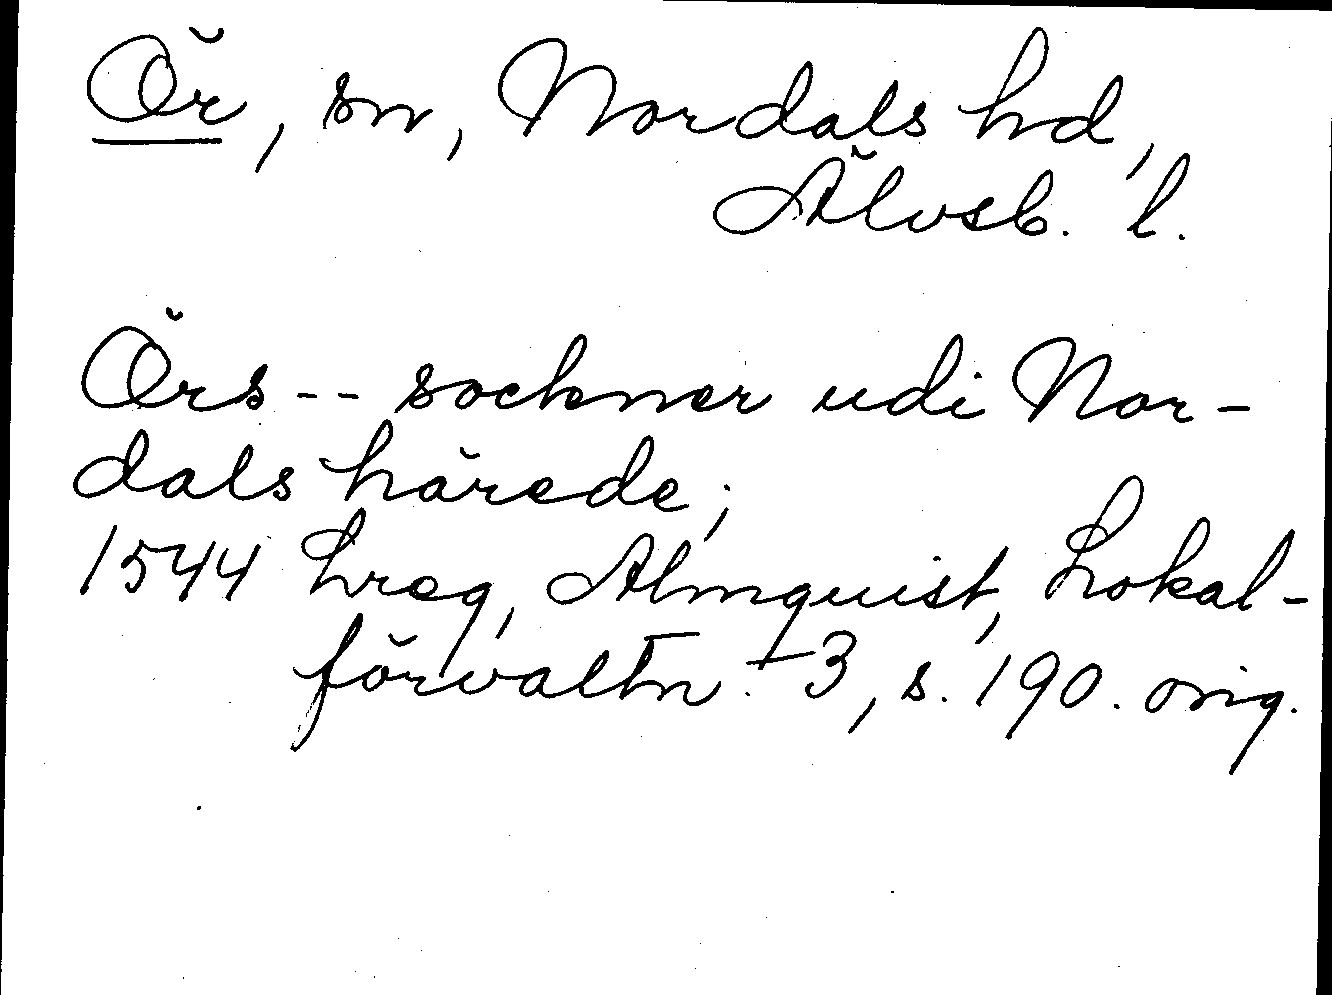 Ör, sn, Nordals hd,
Älvsb. l.
Örs -- sockner udi Nor-
dals härede;
1544 hreg, Almquist, Lokal-
förvaltn. +3, s. 190. orig.